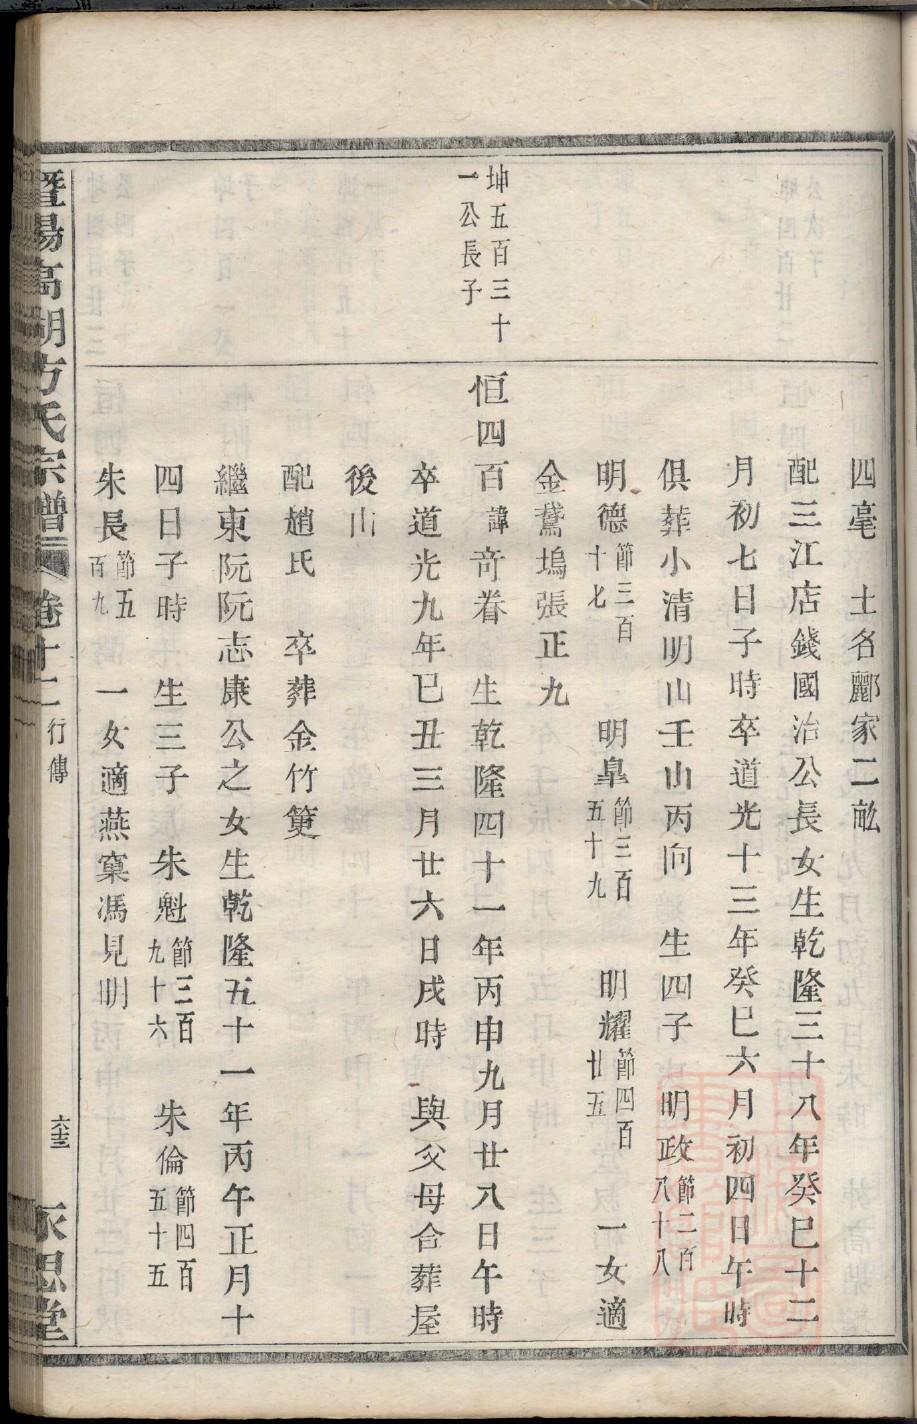 四毫　土名酈家二畝
配三江店錢國治公長女生乾隆三十八年癸巳十二
月初七日子時卒道光十三年癸巳六月初四日午時
俱葬小清明山壬山丙向　生四子　明政節二百八十八
明德節三百十七　明皐節三百五十九　明耀節四百廿五　一女適
金鵞塢張正九
坤五百三十一公長子
恒四百諱奇眷　生乾隆四十一年丙申九月廿八日午時
卒道光九年巳丑三月廿六日戌時　與父母合葬屋
後山
配趙氏　卒葬金竹㙮
繼東阮阮志康公之女生乾隆五十一年丙午正月十
四日子時　生三子　朱魁節三百九十六　朱倫節四百五十五
朱長節五百九　一女適燕窠馮見明
暨陽高湖方氏宗譜　卷十二　行傳　六十三　永思堂